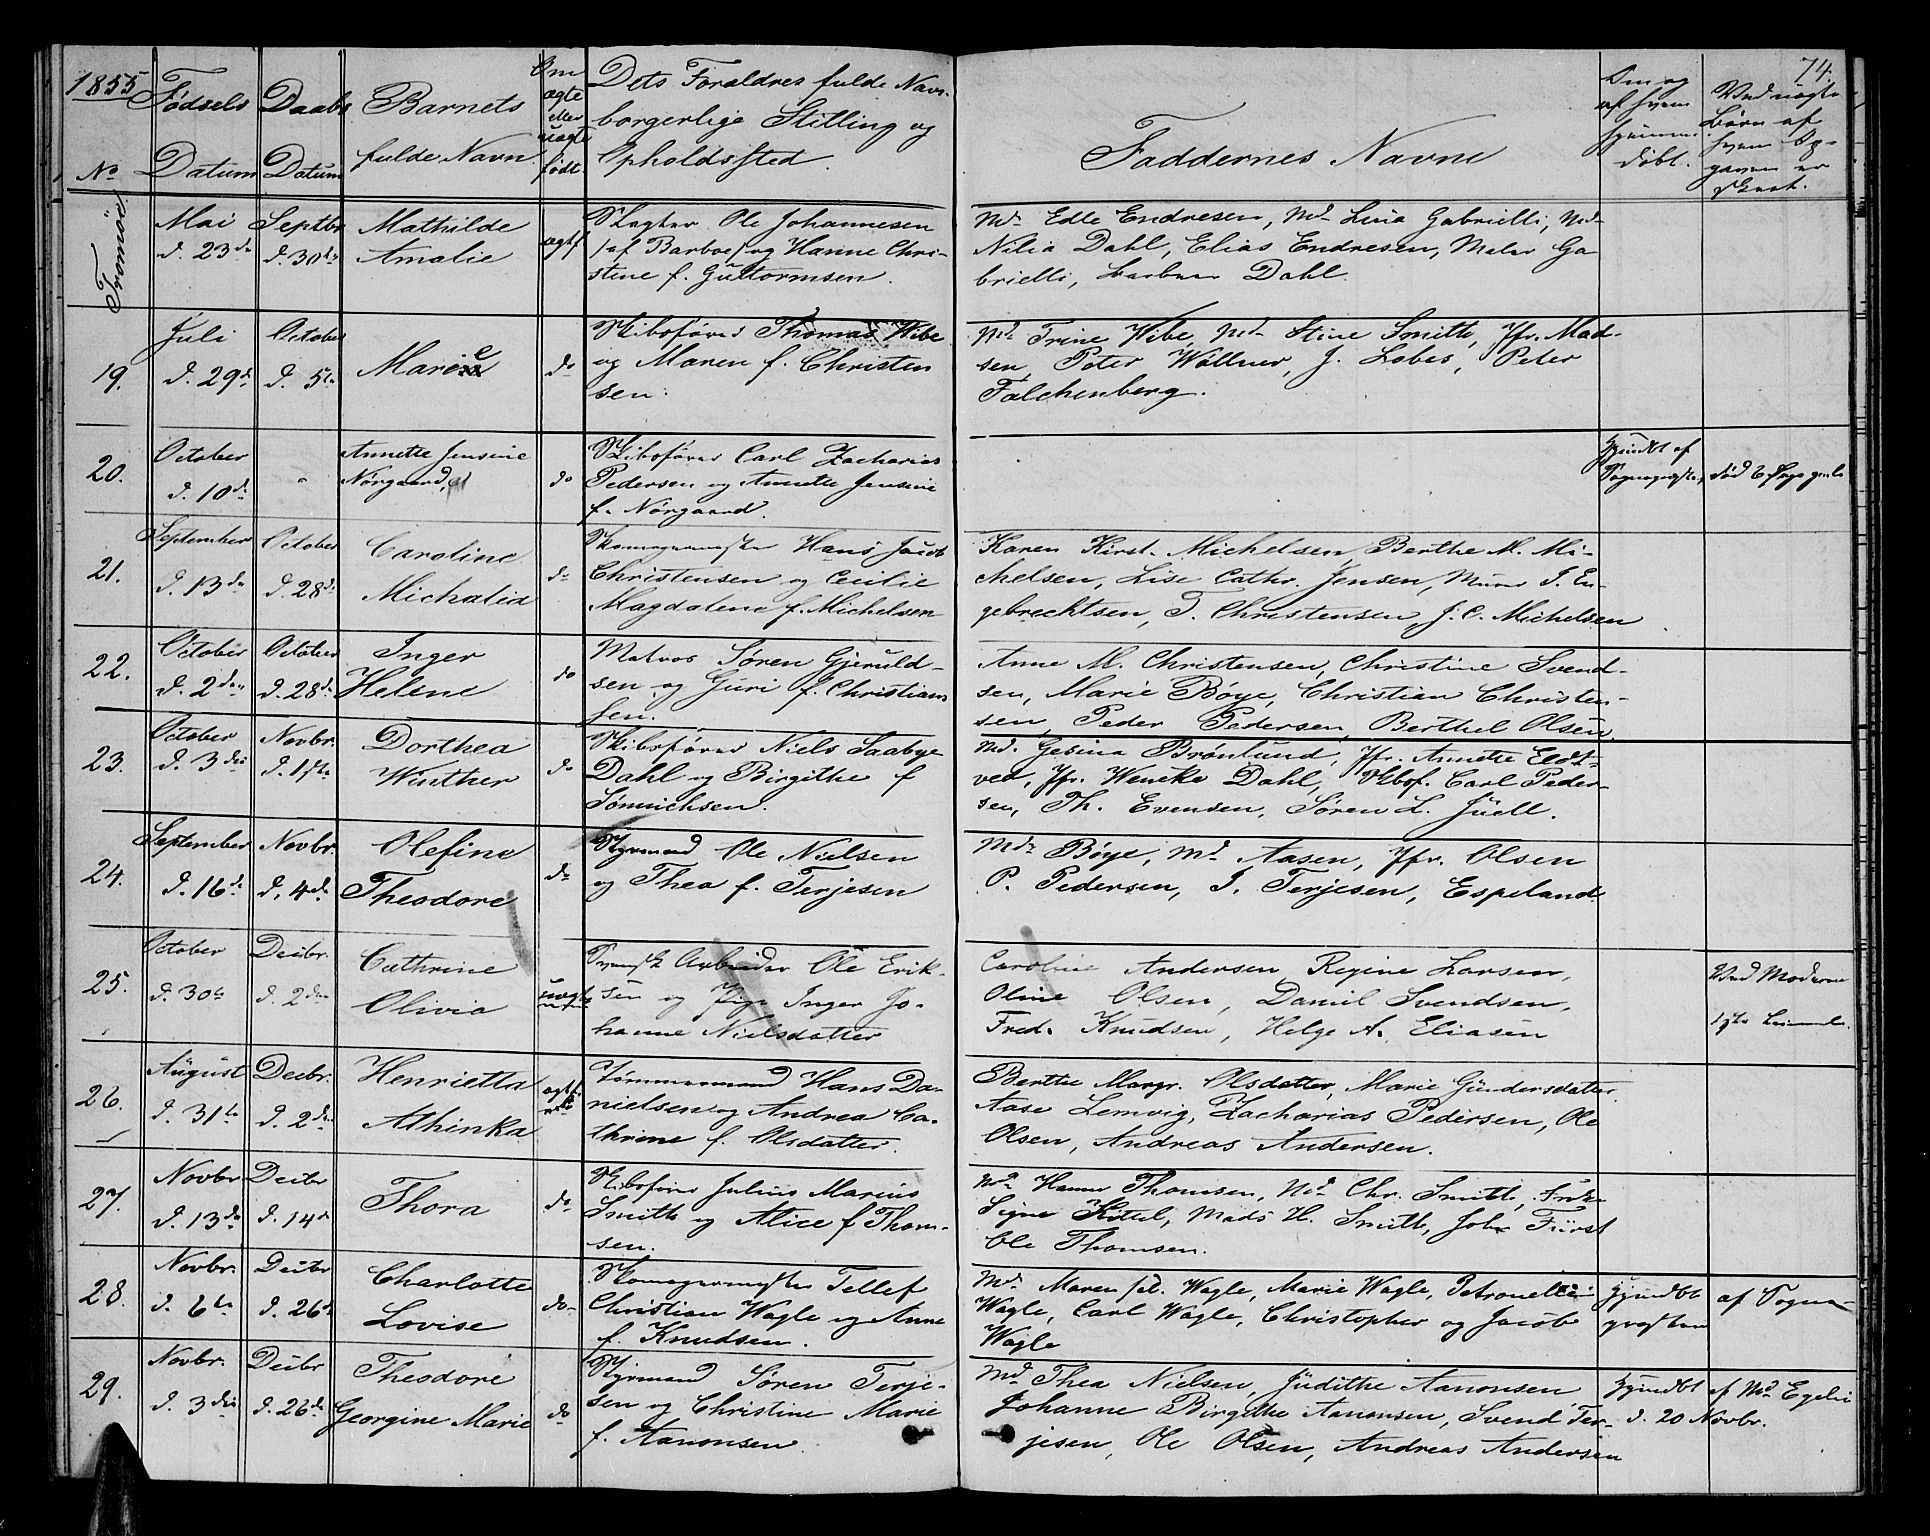 1855
74.
Fødsels Datum
Daabs Datum
Barnets fulde Navn
Om ægte eller uægte født.
Dets Forældres fulde Navn borgerlige Stilling og Opholdssted.
Faddernes Navne
Om og af hvem hjemmedøbt.
Ved uægte Børn af hvem Opgaven er skeet.
No
Tromöe
Mai d. 23de
Septbr d. 30te
Mathilde Amalie
ægte
Slagter Ole Johannesen
(af Barboe) og Hanne Chri-
stine f. Guttormsen.
Md. Edle Endresen, Md. Lina Gabrielli, Md.
Nilia Dahl, Elias Endresen, Maler Ga
brielli, Dahl.
19.
Juli d. 29de
October d. 5te
Maren
do
Skibsfører Thomas Wibe
og Maren f. Christen
sen.
Md. Trine Wibe, Md. Stine Smith, Jfr. Mad-
sen, Peter Wöllner, J. Lobes, Peter
Falchenberg.
20.
October d. 10de
Annette Jensine
Nörgaard,
do
Skibsfører Carl Zacharias
Pedersen og Annette Jensine
f. Nörgaard.
Hjmdbt af
21.
September d. 13de
October d. 28de
Caroline
Michalea
do
Skomagermester Hans Jacob
Christensen og Cecilie
Magdalene f. Michelsen
Karen Kirst. Michelsen, Berthe M. Mi-
chelsen, Lise Cathr. Jensen, Murer J. En-
gebrechtsen, T. Christensen, J. C. Michelsen
22.
October d. 2den
October d. 28de
Inger
Helene
do
Matros Søren Gjeruld-
sen og Guri f. Christian
sen.
Anne M. Christensen, Christine Svend-
sen, Marie Bøye, Christian Christen-
sen, Peder Pedersen, Berthel Olsen
23.
October d. 3die
Novbr. d. 1ste
Dorthea
Winther
do
Skibsfører Niels Saabye
Dahl og Birgithe f
Sönnichsen.
Md. Gesina Brönlund, Jfr. Annette Eldt-
ved, Jfr. Wencke Dahl, Skbsf. Carl Peder-
sen, Th. Evensen, Søren L. Juell.
24.
September d. 16de
Novbr. d. 4de
Olefine
Theodore
do
Styrmand Ole Nielsen
og Thea f. Terjesen
Md. Bøye, Md. Aasen, Jfr. Olsen
P. Pedersen, J. Terjesen, Espeland
25.
October d. 30te
Decbr. d. 2den
Cathrine
Olivia
uægte
Svensk Arbeider Ole Erik-
sen og Pige Inger Jo-
hanne Nielsdatter
Caroline Andersen, Regine Larsen,
Oline Olsen, Daniel Svendsen,
Fred. Knudsen, Helge A. Eliasen
Ved Moderen
26.
August d. 31te
Decbr. d. 2den
Henrietta
Athinka
ægte
Tömmermand Hans Da-
nielsen og Andrea Ca-
thrine f. Olsdatter.
Berthe Margr. Olsdatter, Marie Gundersdatter,
Aase Lemvig, Zacharias Pedersen, Ole
Olsen, Andreas Andersen.
27.
Novbr d. 13de
Decbr d. 14de
Thora
do
Skibsfører Julius Marius
Smith og Alice f Thom-
sen.
Md. Hanne Thomsen, Md. Chr. Smith,
Signe Kittel, Mads H. Smith, John Fürst
Ole Thomsen.
28.
Novbr. d. 6te
Decbr d. 26de
Charlotte
Lovise
do
Skomagermester Tellef
Christian Wagle og Anne
f. Knudsen.
Md. Maren sal. Wagle, Marie Wagle, Petronelle
Wagle, Carl Wagle, Christopher og Jacob
Wagle
Hjmdbt af Sogne-
præsten
29.
Novbr. d. 3die
Decbr d. 26de
Theodore
Georgine Marie
do
Styrmand Søren Terje-
sen og Christine Marie
f. Aanonsen.
Md. Thea Nielsen, Judithe Aanonsen
Johanne Birgithe Aanonsen, Svend Ter-
jesen, Ole Olsen, Andreas Andersen
Hjmdbt af Md. Egelie
d. 20 Novbr.